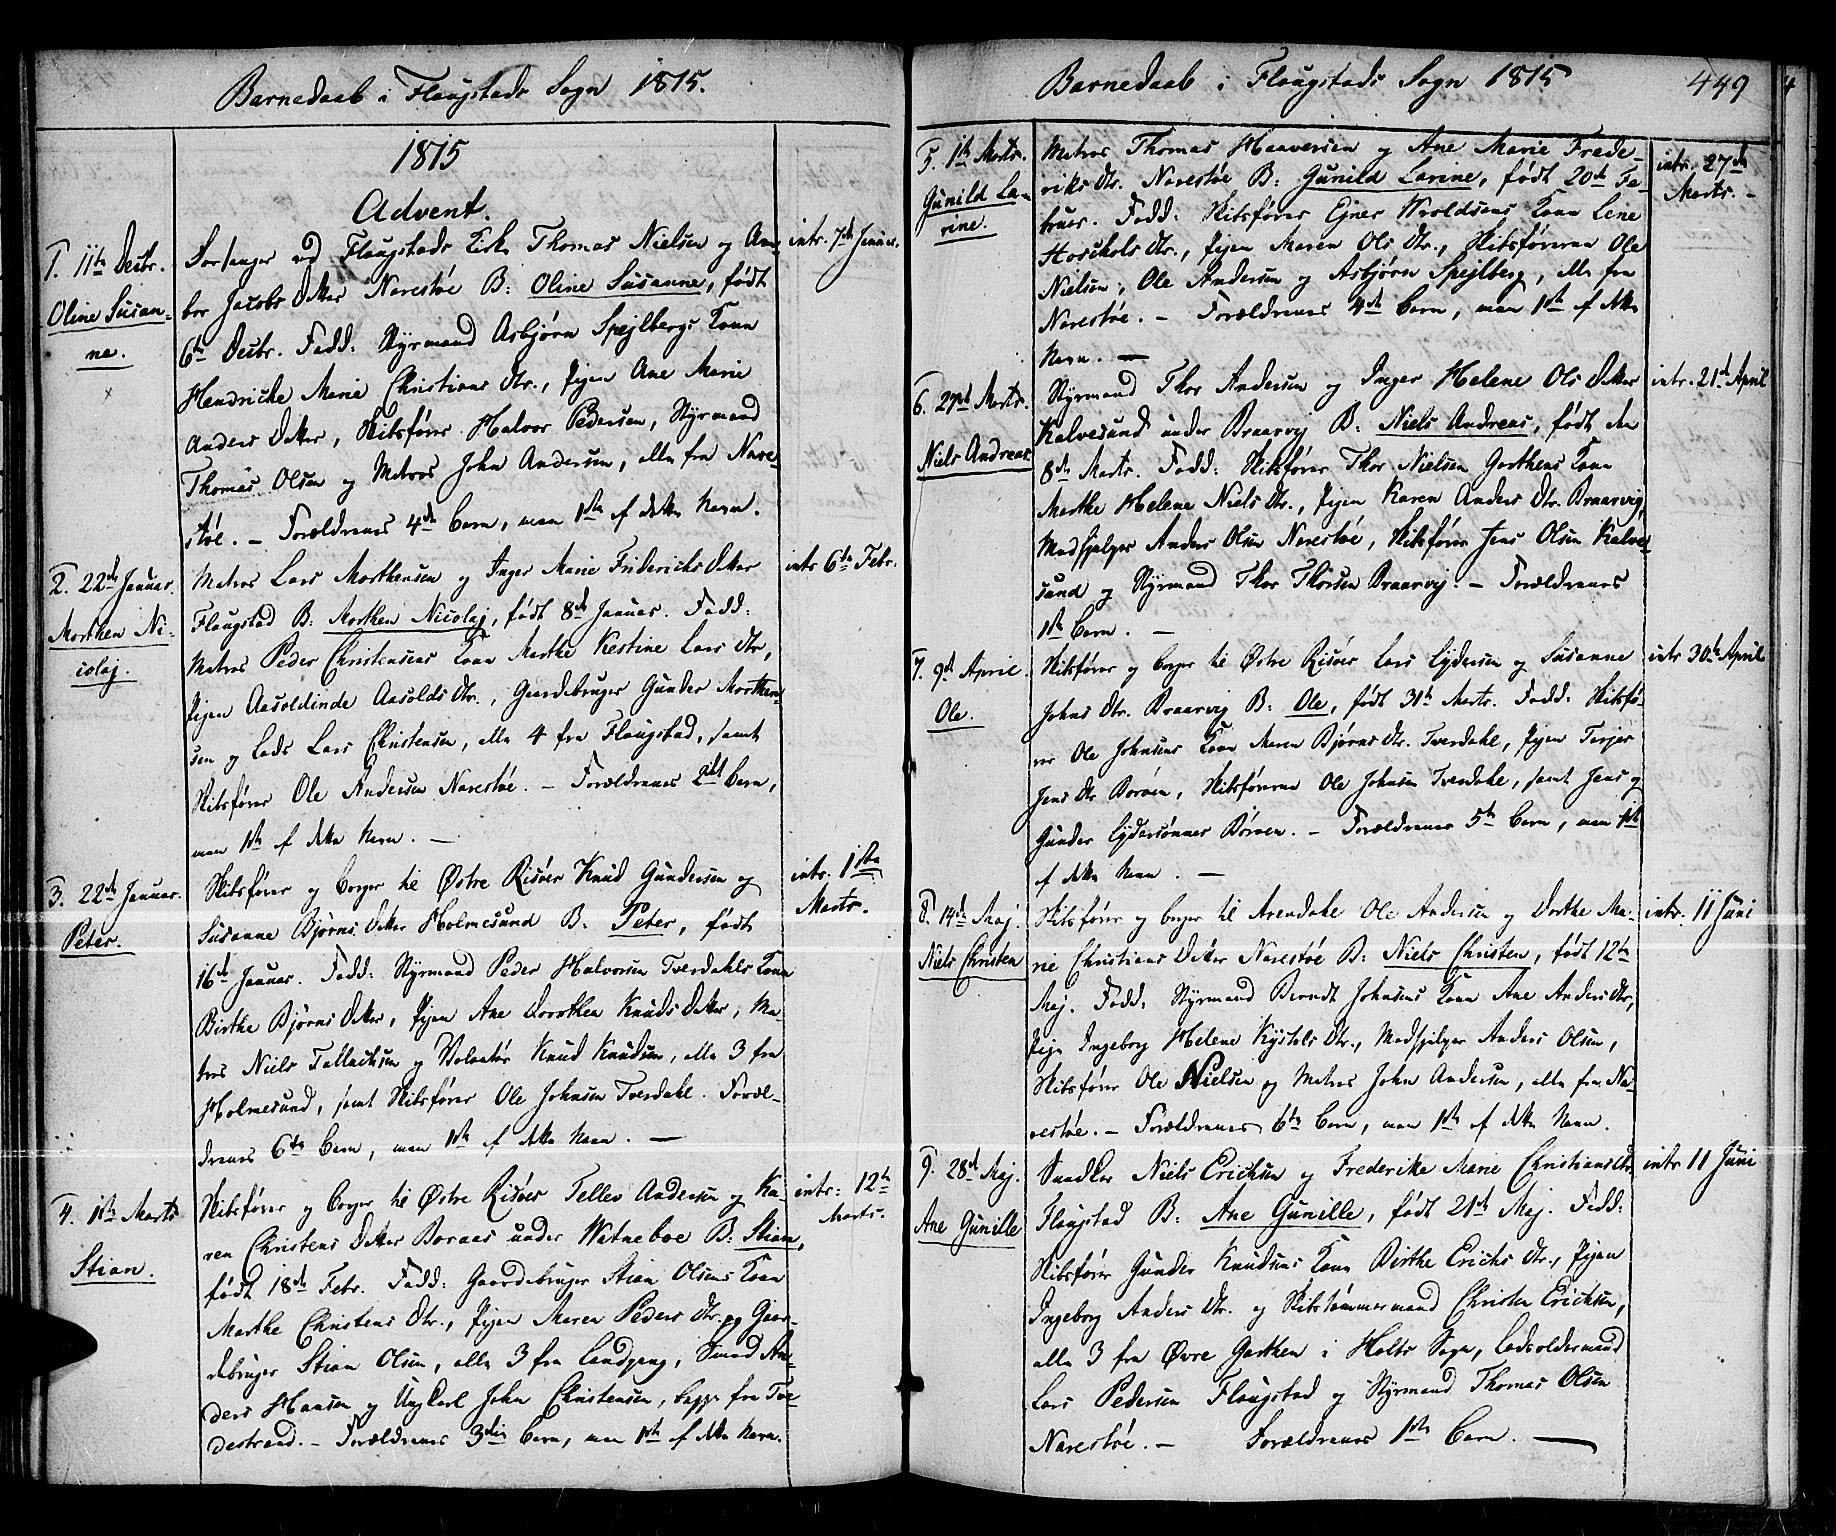 Barnedaab i Flaugstads Sogn 1815.
1815
Advent.
1. 11te Decbr.
Oline Susan-
ne.
Forsanger ved Flaugstads Kirke Thomas Nielsen og Am-
bor Jacobs Datter Narestøe B: Oline Susanne, født
6te Decbr. Fadd: Styrmand Asbjørn Spejlbergs Kone
Hendricke Marie Christians Dtr., Pigen Ane Marie
Anders Datter, Skibsfører Halvor Pedersen, Styrmand
Thomas Olsen og Matros John Andersen, alle fra Nare-
støe. – Forældrenes 4de Barn, men 1ste af dette Navn.
intr. 7de Januar.
2. 22de Januar.
Morthen Ni-
colaj.
Matros Lars Morthensen og Inger Marie Friderichs Datter
Flaugstad B: Morthen Nicolaj, født 8de Januar. Fadd:
Matros Peder Christensens Kone Marthe Kestine Lars Dtr,
Pigen Aasoldinde Aasolds Dtr., Gaardebruger Gunder Morthen-
sen og Lods Lars Christensen, alle 4 fra Flaugstad, samt
Skibsfører Ole Andersen Narestøe. – Forældrenes 2det Barn,
men 1ste af dette Navn. –
intr 6te Febr.
3. 22de Januar.
Peter.
Skibsfører og Borger til Østre Risøer Knud Gundersen og
Susanne Bjørns Datter Holmesund B. Peter, født
16de Januar. Fadd: Styrmand Peder Halvorsen Tverdahls Kone
Birthe Bjørns Datter, Pigen Ane Dorothea Knuds Datter, Ma-
tros Niels Tellachsen og Volontør Knud Knudsen, alle 3 fra
Holmesund, samt Skibsfører Ole Johnsen Tverdahl. Foræl-
drenes 6te Barn, men 1ste af dette Navn. –
intr. 1ste
Marts.
4. 1ste Marts
Stian.
Skibsfører og Borger til Østre Risøer Tellev Andersen og Ka-
ren Christens Datter Boraas under Watneboe B: Stian,
født 18de Febr. Fadd: Gaardebruger Stian Olsens Kone
Marthe Christens Dtr., Pigen Maren Peders Dtr. og Gaar-
debruger Stian Olsen, alle 3 fra Landgang, Smed An-
ders Hansen og Ungkarl John Christensen, begge fra Tve-
destrand. – Forældrenes 3die Barn, men 1ste af dette Navn.
intr: 12te
Marts.
Barnedaab i Flaugstads Sogn 1815
449
5. 1ste Marts.
Gunild La-
rine.
Matros Thomas Haaversen og Ane Marie Frede-
riks Dtr. Narestøe B: Gunild Larine, født 20de Fe-
bruar. Fadd: Skibsfører Ejner Wroldsens Kone Lene
Hoskols Dtr., Pigen Maren Ols Dtr., Skibsførerne Ole
Nielsen, Ole Andersen og Asbjørn Spejlberg, alle fra
Narestøe. – Forældrenes 4de Barn, men 1ste af dette
Navn. –
intr. 27de
Marts. –
6. 27de Marts.
Niels Andreas
Styrmand Thor Andersen og Inger Helene Ols Datter
Kalvesund under Braarvig B: Niels Andreas, født den
8de Marts. Fadd: Skibsfører Thor Nielsen Garthens Kone
Marthe Helene Niels Dtr., Pigen Karen Anders Dtr. Braarvig,
Medhjelper Anders Olsen Narestøe, Skibsfører Jens Olsen Kalve-
sund og Styrmand Thor Thorsen Braarvig. – Forældrenes
1ste Barn. –
intr. 21de April
7. 9de April.
Ole.
Skibsfører og Borger til Østre Risøer Lars Lydersen og Susanne
Johns Dtr. Braarvig B: Ole, født 31te Marts. Fadd: Skibsfø-
rer Ole Johnsens Kone Maren Bjørns Dtr. Tverdahl, Pigen Terjer
Jens Dtr Borøen, Skibsførerne Ole Johnsen Tverdahl, samt Jens og
Gunder Lydersønner Borøen. – Forældrenes 5te Barn, men 1ste
af dette Navn. –
intr 30te April
8. 14de Maj.
Niels Christen
Skibsfører og Borger til Arendahl Ole Andersen og Dorthe Ma-
rie Christians Datter Narestøe B: Niels Christen, født 12te
Maj. Fadd: Styrmand Berndt Johnsens Kone Ane Anders Dtr,
Pige Ingeborg Helene Kystols Dtr., Medhjelper Anders Olsen,
Skibsfører Ole Nielsen og Matros John Andersen, alle fra Na-
restøe. – Forældrenes 6te Barn, men 1ste af dette Navn.
intr. 11 Juni
9. 28de Maj.
Ane Gunille
Snedker Niels Erichsen og Frederike Marie Christians Dtr
Flaugstad B: Ane Gunille, født 21de Maj. Fadd:
Skibsfører Gunder Knudsens Kone Birthe Erichs Dtr., Pigen
Ingeborg Anders Dtr. og Skibstømmermand Christen Erichsen,
alle 3 fra Øvre Garthen i Holts Sogn, Lodsoldermand
Lars Pedersen Flaugstad og Styrmand Thomas Olsen
Narestøe. – Forældrenes 1ste Barn. –
intr 11 Juni